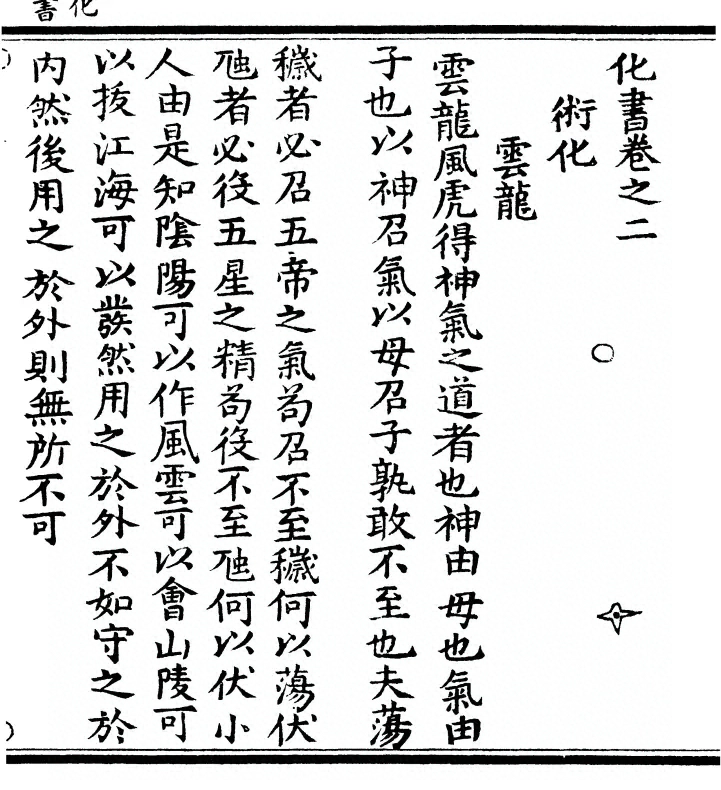 化書
化書卷之二
術化
雲龍
雲龍風虎得神氣之道者也神由母也氣由
子也以神召氣以母召子孰敢不至也夫蕩
穢者必召五帝之氣苟召不至穢何以蕩伏
虺者必役五星之精苟役不至虺何以伏小
人由是知陰陽可以作風雲可以會山陵可
以拔江海可以發然用之於外不如守之於
內然後用之於外則無所不可